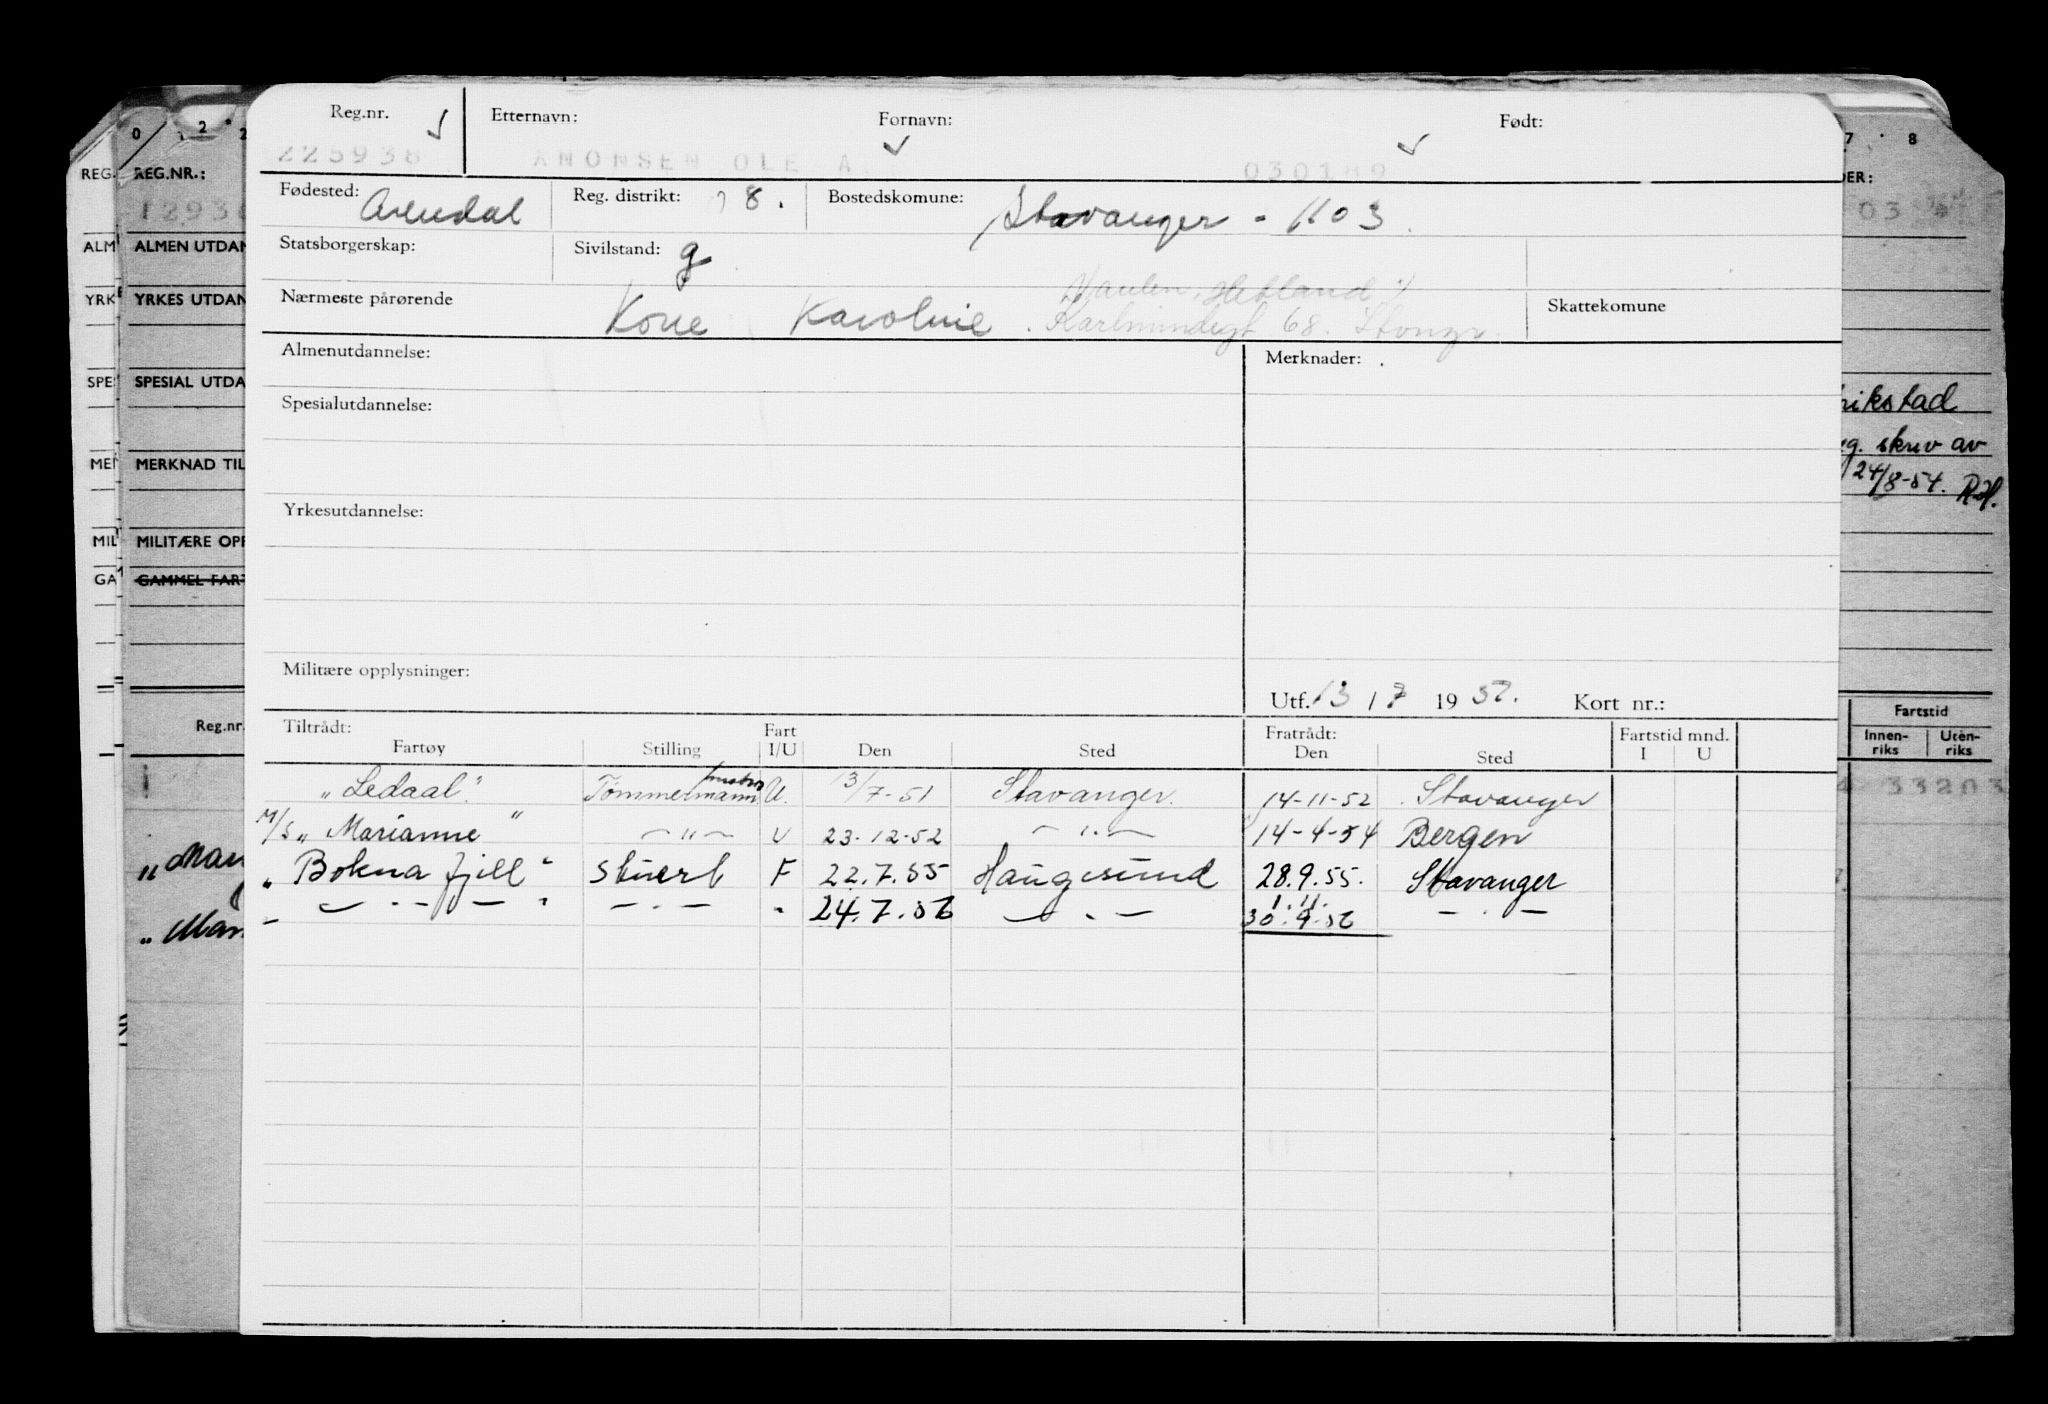 Reg.nr. Etternavn: Fornavn: Født:
225938 ANONSEN OLE A. 030189
Fødested: Arendal Reg. distrikt: 8. Bostedskomune: Stavanger - 1103
Statsborgerskap: Sivilstand: g
Vaulen, Hetland
Nærmeste pårørende Kone Karoline . 68. Skattekomune
Almenutdannelse: Merknader:
Spesialutdannelse:
Yrkesutdannelse:
Militære opplysninger:
Utf. 13 / 7 19 Kort nr.:
Tiltrådt: Fart Fratrådt: Fartstid mnd.
Fartøy Stilling I/U Den Sted Den Sted I U
„Ledaal" Tømmermann U. 13/7-51 Stavanger. 14-11-52 Stavanger
M/S „Marianne" —„— U 23-12-52 —„— 14-4-54 Bergen
„Bokna fjell" Stuert F 22.7.55 Haugesund 28.9.55. Stavanger
1.11.
24.7.56 30.9.56
0 1 2 2
REG. REG.NR.:
ALM ALMEN UTDAN
YRK YRKES UTDAN
SPE SPESIAL UTDA
MERKNAD TIL
MIL MILITÆRE OPP
GA GAMMEL FART
Reg.nr.
„Mar
„Mar
7 8
DER:
03
rikstad
skriv av
24/8-54.
Fartstid
Innen-riks Uten-riks
33203